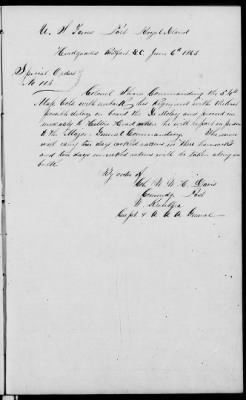 U. S. Forces Port Royal Island
Headquarters Beaufort S.C. June 6th 1863
Special Orders
No 115
Colonel Shaw Commanding the 54th
Mass Cols will embark his Regiment with
on board the De Molay and proceed im
mediately to Hilton Head where he will report in person
to the Major General Commanding. The men
will carry two days cooked rations in their haversacks
and two days uncooked rations will be taken along in
bulk.
By order of
Col W W H Davis
Commdg Post
Capt & A. A. A. General